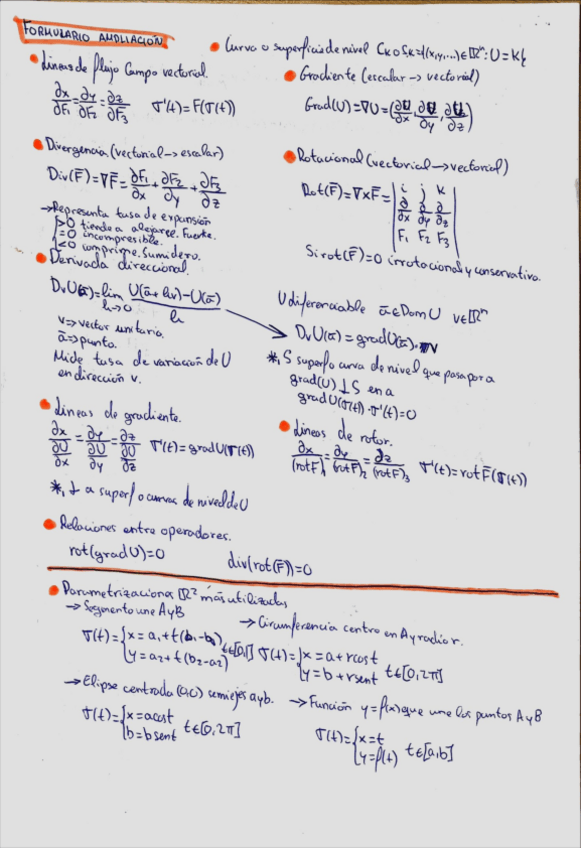 FORMULARIO AMPLIACIÓN
Curva o superficies de nivel Ck o Sk={(x,y,...)∈ℝⁿ: U=K}
Lineas de flujo Campo vectorial.
∂x/∂F₁ = ∂y/∂F₂ = ∂z/∂F₃ σ'(t)=F(σ(t))
Gradiente (escalar → vectorial)
Grad(U)=∇U=(∂U/∂x, ∂U/∂y, ∂U/∂z)
Divergencia (vectorial → escalar)
Div(F̄)=∇F̄=∂F₁/∂x+∂F₂/∂y+∂F₃/∂z
→Representa tasa de expansión
>0 tiende a alejarse. Fuente.
=0 incompresible.
<0 comprime. Sumidero.
Rotacional (vectorial→vectorial)
Rot(F̄)=∇×F̄=
|i j k|
|∂/∂x ∂/∂y ∂/∂z|
|F₁ F₂ F₃|
Si rot(F̄)=0 irrotacional y conservativo.
Derivada direccional.
DᵥU(ā)=lim h→0 U(ā+hv)-U(ā) / h
v=>vector unitario.
ā=>punto.
Mide tasa de variación de U
en dirección v.
U diferenciable ā∈Dom U v∈ℝⁿ
DᵥU(ā)=gradU(ā)·v
*₁ S superf o curva de nivel que pasa por a
grad(U)⊥S en a
gradU(σ(t))·σ'(t)=0
Lineas de gradiente.
∂x/(∂U/∂x) = ∂y/(∂U/∂y) = ∂z/(∂U/∂z) σ'(t)=gradU(σ(t))
*₁ ⊥ a superf o curvas de nivel de U
Lineas de rotor.
∂x/(rotF)₁ = ∂y/(rotF)₂ = ∂z/(rotF)₃ σ'(t)=rotF̄(σ(t))
Relaciones entre operadores.
rot(gradU)=0 div(rot(F̄))=0
Parametrizaciones ℝ² más utilizadas
→Segmento une A y B
σ(t)={x=a₁+t(b₁-b₀) t∈[0,1]
y=a₂+t(b₂-a₂)
→Circunferencia centro en A y radio r.
σ(t)={x=a+rcost
y=b+rsent t∈[0,2π]
→Elipse centrada (0,0) semiejes a y b.
σ(t)={x=acost
b=bsent t∈[0,2π]
→Función y=f(x) que une los puntos A y B
σ(t)={x=t
y=f(t) t∈[a,b]